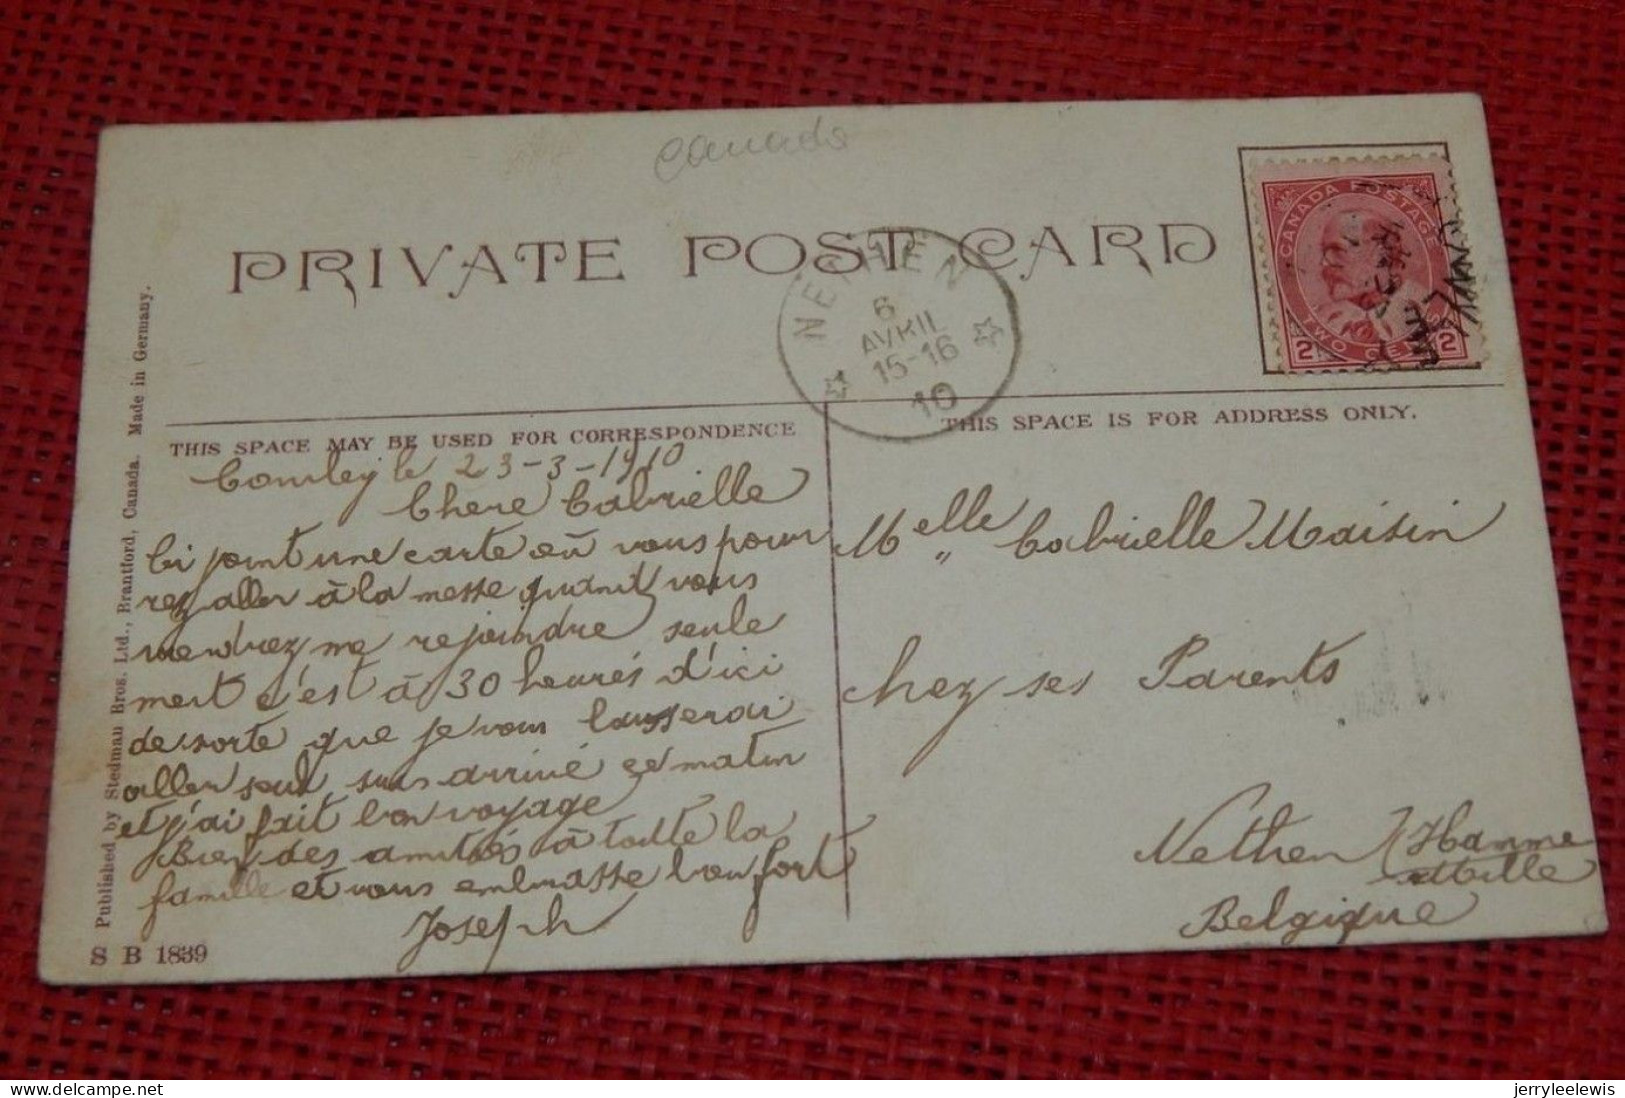 Canada
PRIVATE POST CARD
NETHEN
6
AVRIL
15-16
10
CANADA POSTAGE
2 TWO CENTS 2
THIS SPACE MAY BE USED FOR CORRESPONDENCE
THIS SPACE IS FOR ADDRESS ONLY.
le 23-3-1910
Chere Gabrielle
Ci joint une carte où vous pour
rez aller à la messe quand vous
viendrez me rejoindre seule
ment c'est à 30 heures d'ici
de sorte que je vous laisserai
aller seul, suis arrivé ce matin
et j'ai fait bon voyage
Bien des amitiés à toute la
famille et vous embrasse bien fort
Joseph
Melle Gabrielle Maisin
chez ses Parents
Nethen / Hamme
mille
Belgique
Published by Stedman Bros. Ltd., Brantford, Canada. Made in Germany.
S B 1839
jerryleelewis
delcampe.net